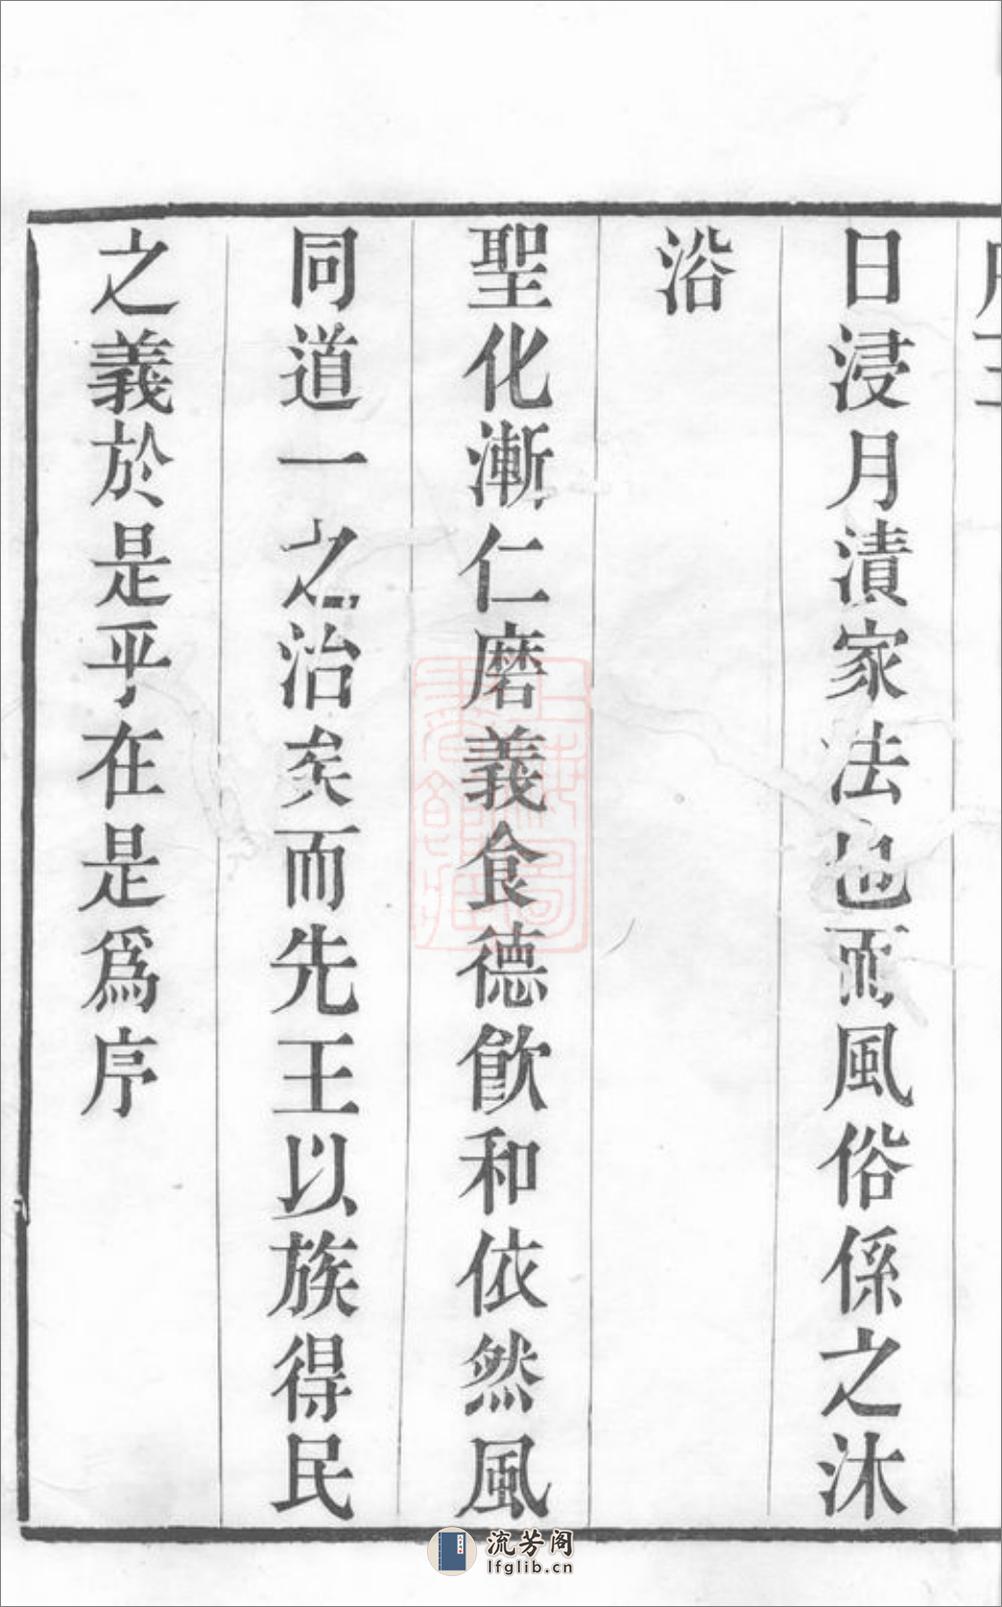 日浸月漬家法也而風俗係之沐
浴
聖化漸仁磨義食德飮和依然風
同道一之治矣而先王以族得民
之義於是乎在是爲序
流芳阁
lfglib.cn